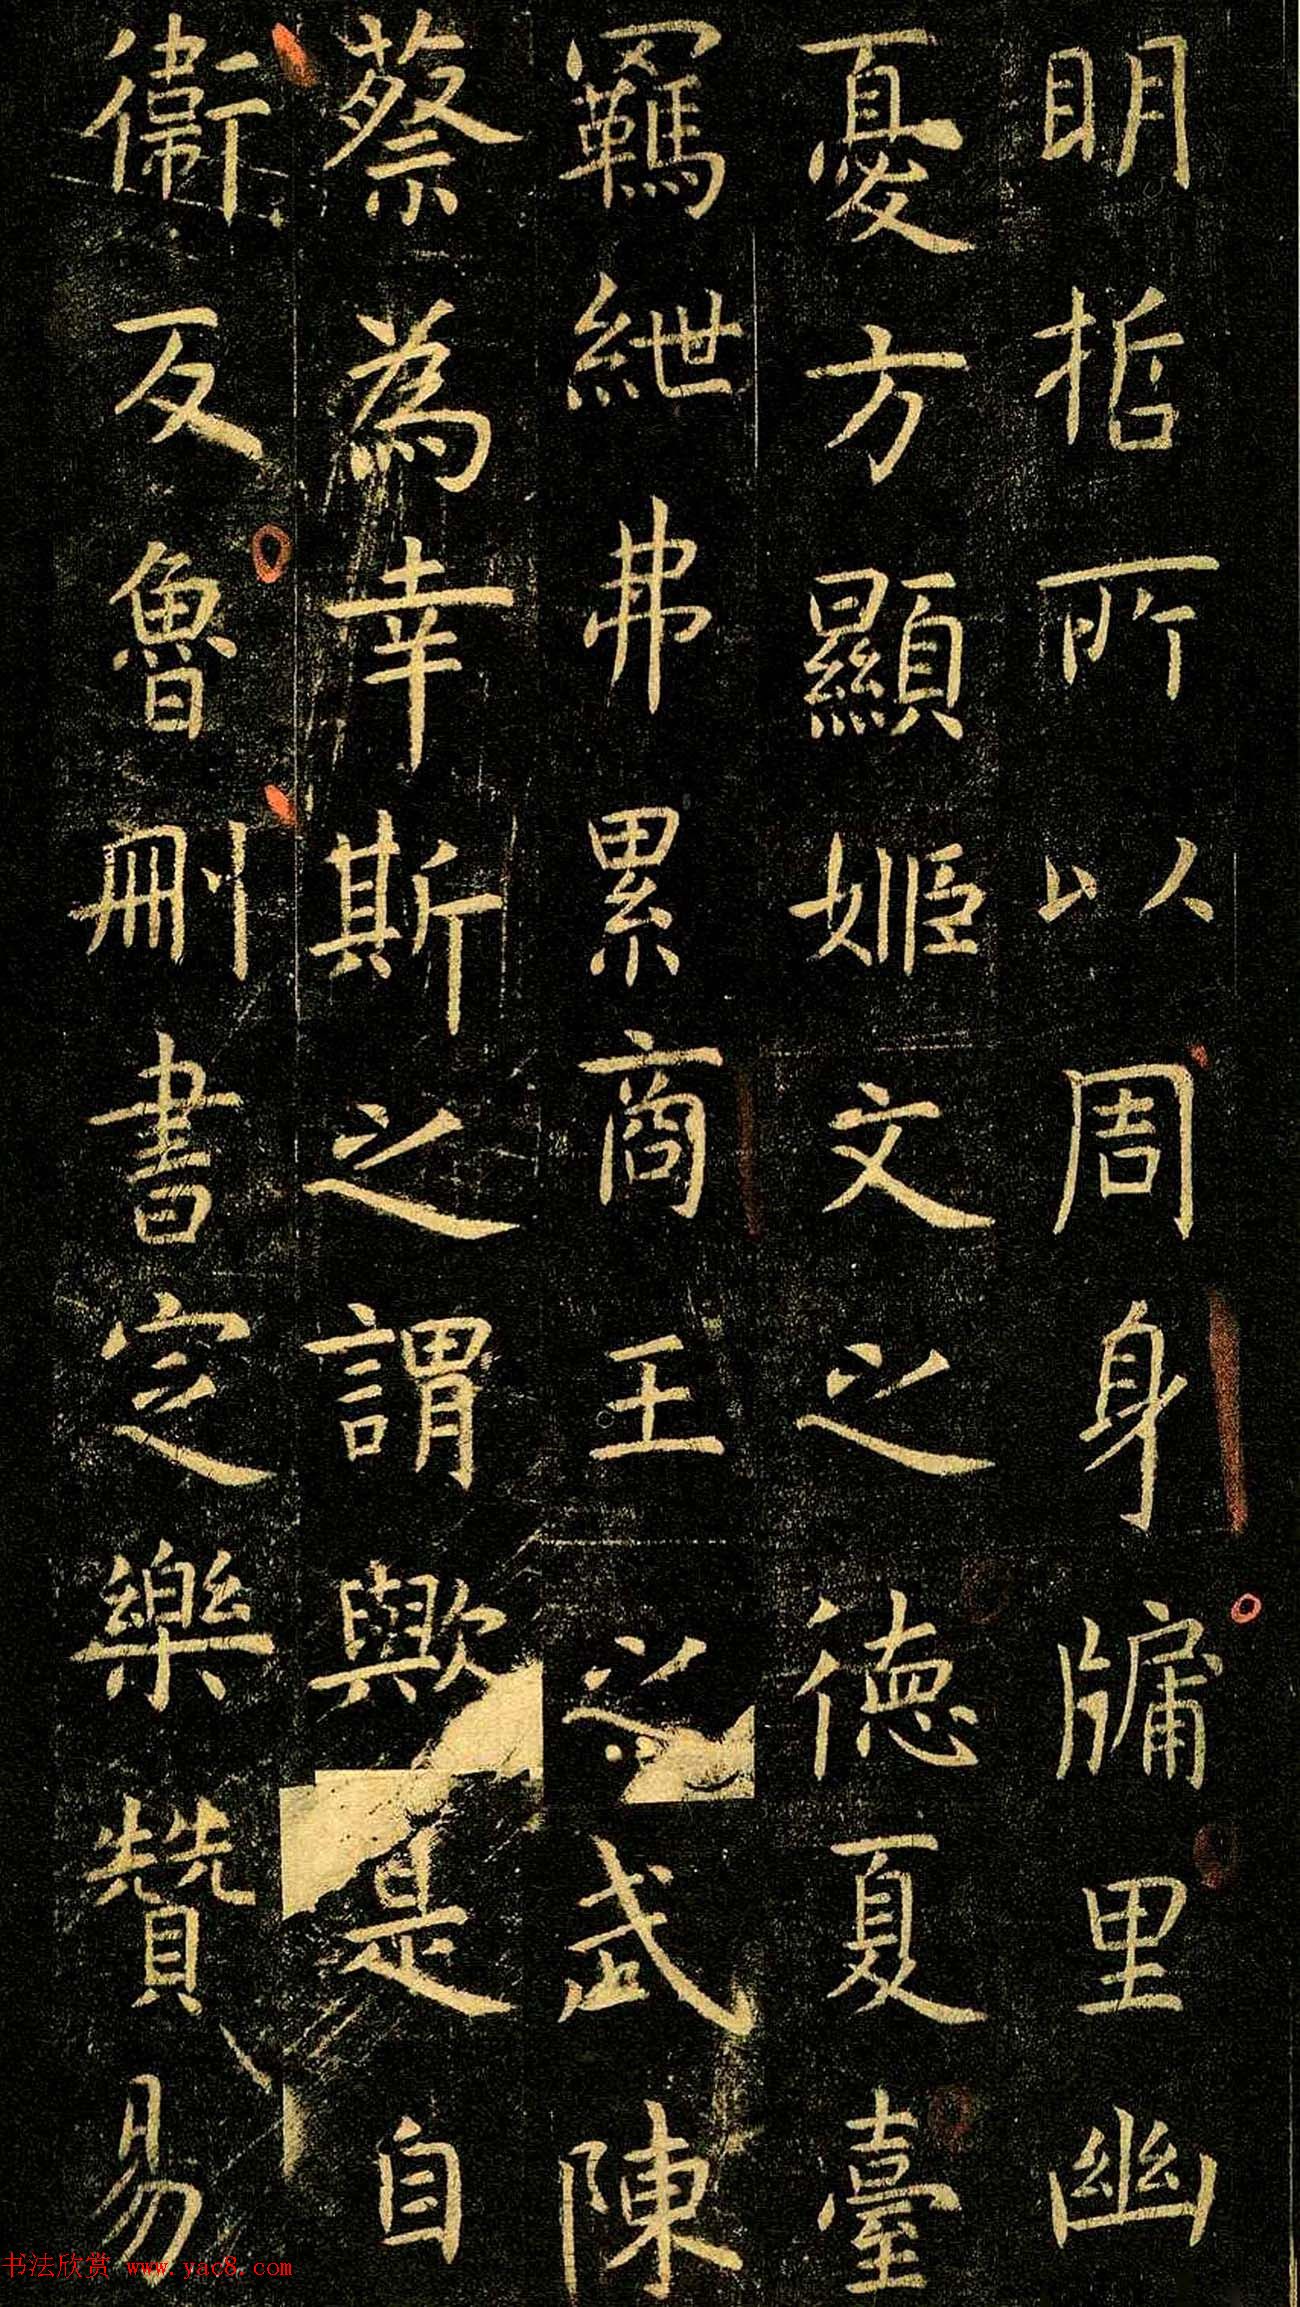 明哲所以周身牗里幽
憂方顯姬文之德夏臺
羈紲弗累商王之武陳
蔡為幸斯之謂歟是自
衛反魯刪書定樂贊易
书法欣赏 www.yac8.com